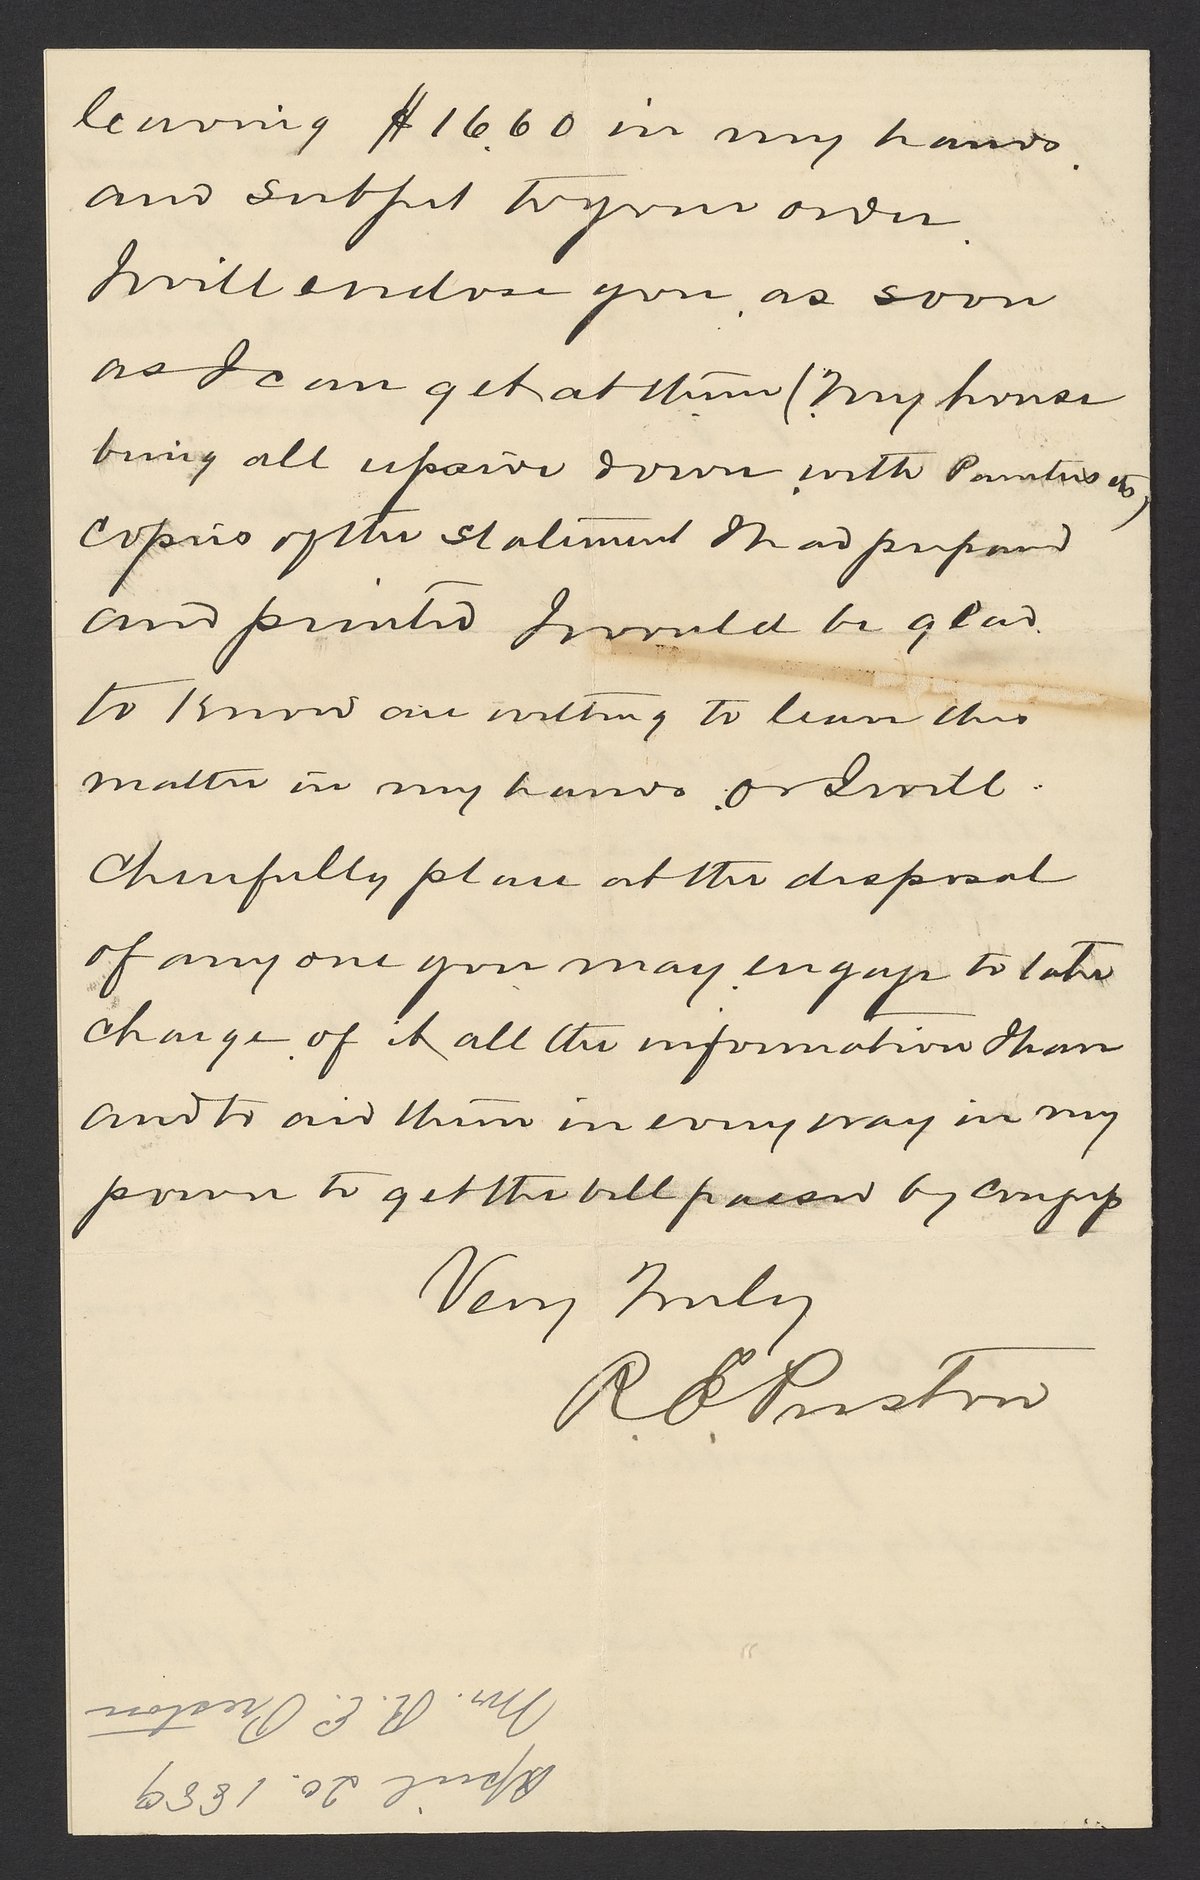 leaving $16.60 in my hands
and subject to your order.
I will enclose you as soon
as I can get at them (my house
being all upside down with Painters etc)
copies of the statement I had prepared
and printed I would be glad
to know are willing to leave this
matter in my hands or I will
cheerfully place at the disposal
of any one you may engage to take
charge of it all the information I have
and to aid them in every way in my
power to get the bill passed by Congress
Very Truly
R. E. Preston
Mr. R. E. Preston
April 20. 1889